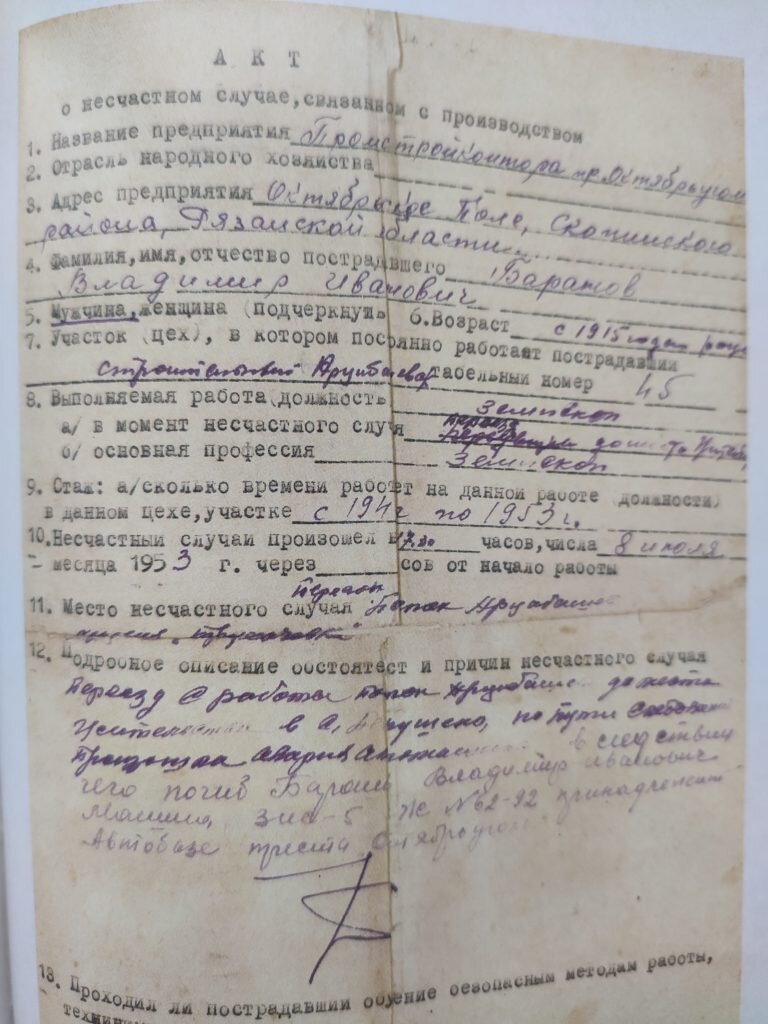 АКТ
о несчастном случае, связанном с производством
1. Название предприятия Промстройконтора тр. Октябрьугол
2. Отрасль народного хозяйства
3. Адрес предприятия Октябрьское Поле, Скопинского
района, Рязанской области
4. Фамилия, имя, отчество пострадавшего Баранов
Владимир Иванович
5. Мужчина, женщина (подчеркнуть 6. Возраст с 1915 года рожд
7. Участок (цех), в котором постоянно работает пострадавший
строительный табельный номер 45
8. Выполняемая работа (должность
землекоп
а/ в момент несчастного случая переезд до места
б/ основная профессия землекоп
9. Стаж: а/сколько времени работает на данной работе (должности)
в данном цехе, участке с 194 г по 1953 г.
10. Несчастный случай произошел в часов, числа 8 июля
месяца 1953 г. через сов от начало работы
11. Место несчастного случая Перегон
12. Подробное описание обстоятест и причин несчастного случая
Переезд с работы до места
жительства в по пути следования
произошла авария в следствии
чего погиб Баранов Владимир Иванович
Машина ЗИС-5 № 62-92 принадлежит
Автобазе треста Октябрьуголь
13. Проходил ли пострадавший обучение безопасным методам работы,